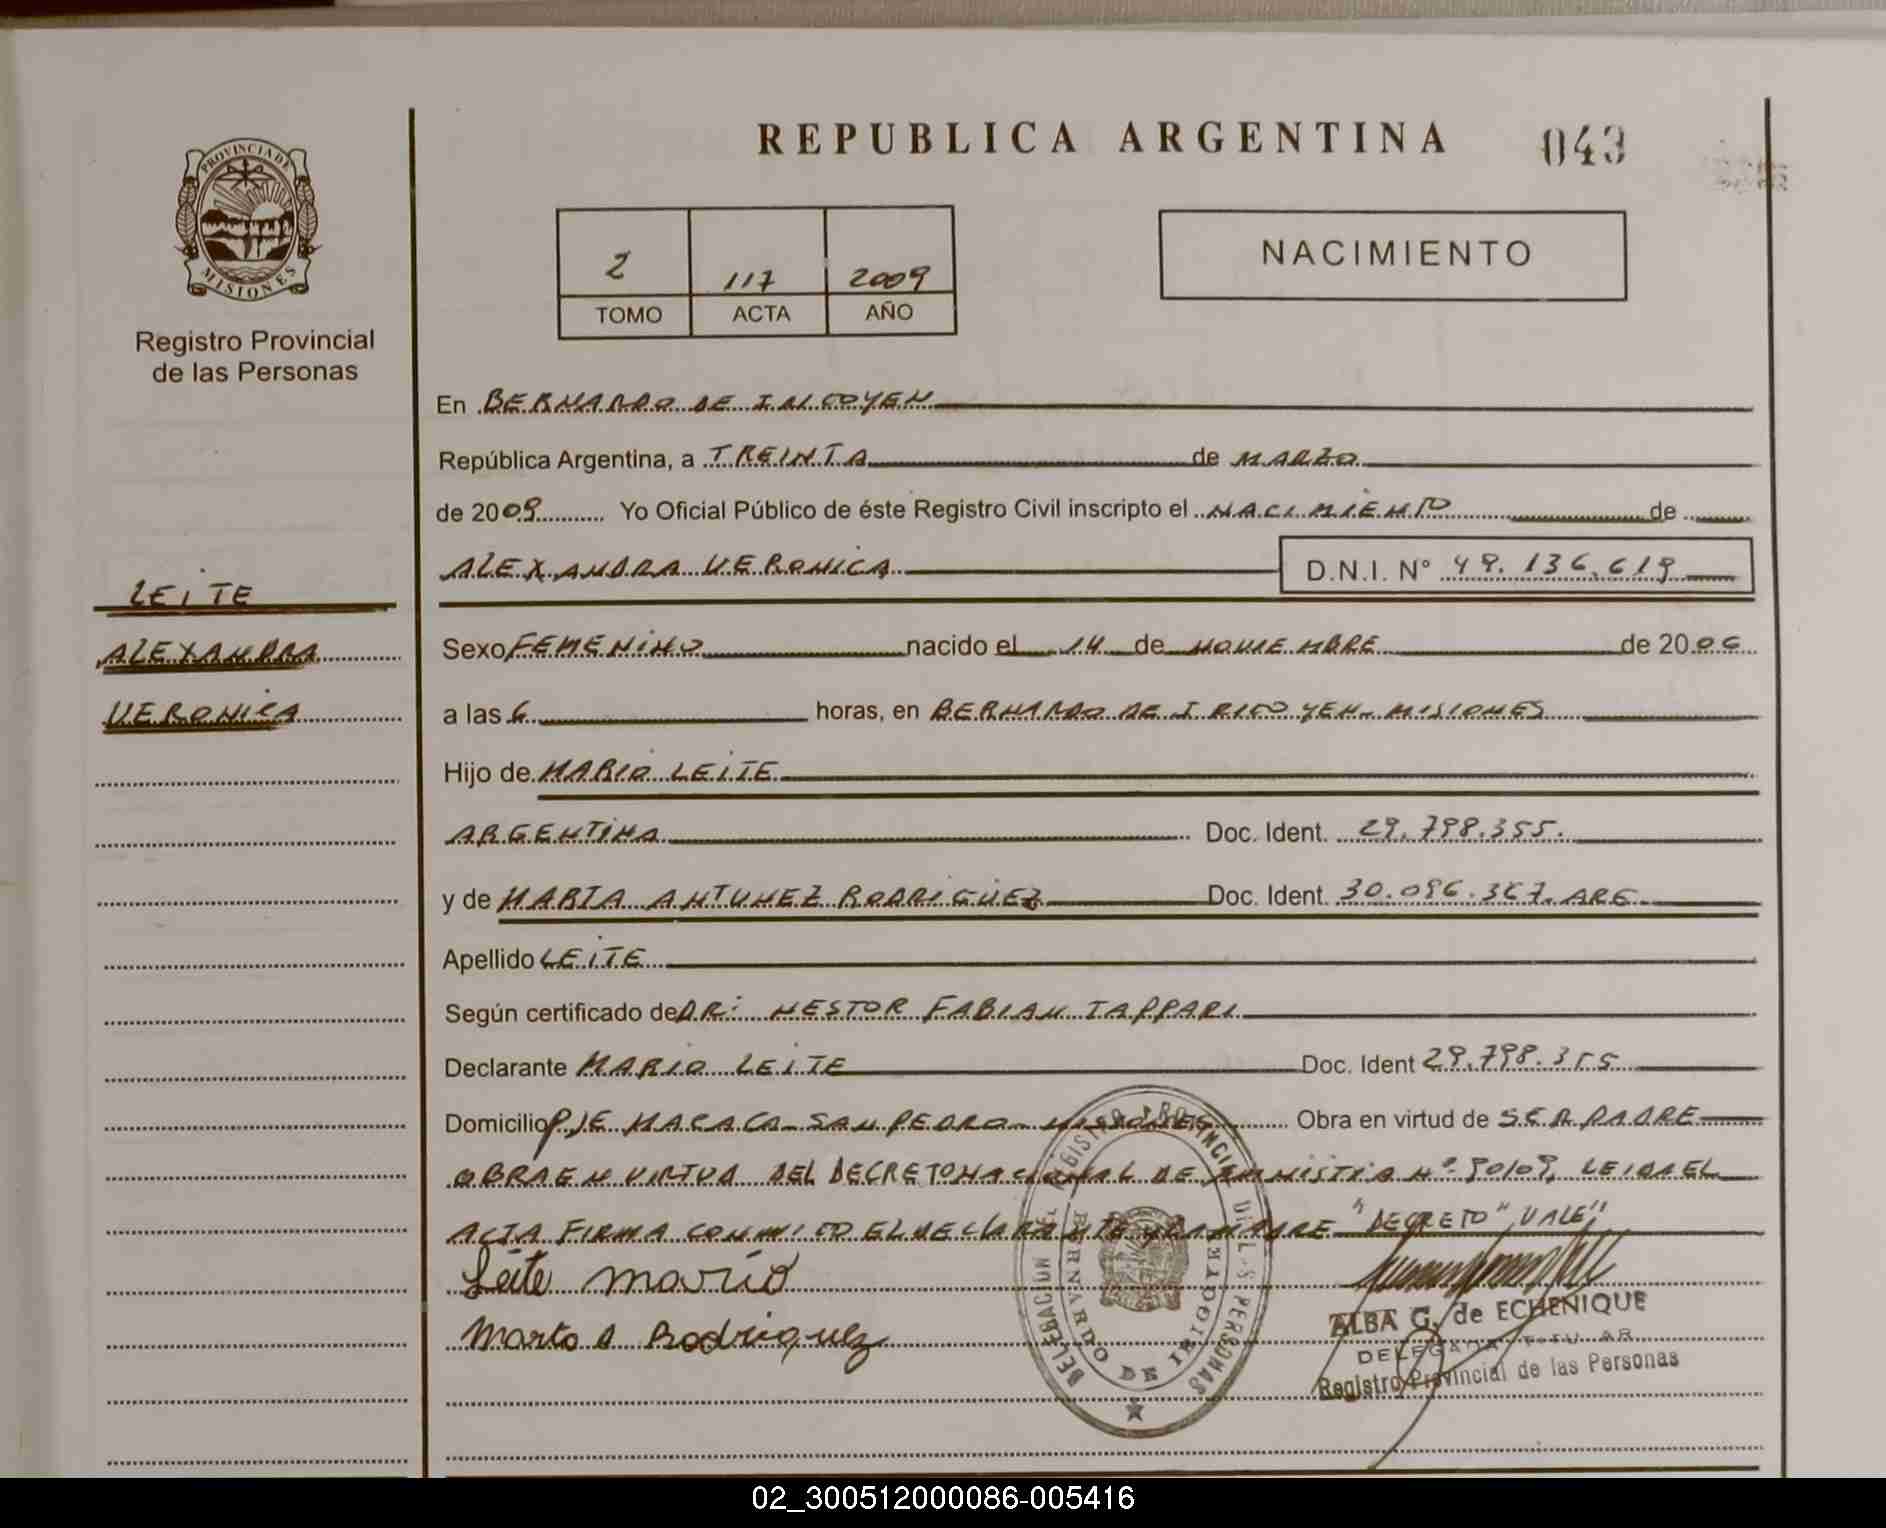 REPUBLICA ARGENTINA
043
PROVINCIA DE
MISIONES
Registro Provincial
de las Personas
2 117 2009
TOMO ACTA AÑO
NACIMIENTO
En BERNARDO DE IRIGOYEN
República Argentina, a TREINTA de MARZO
de 2009 Yo Oficial Público de éste Registro Civil inscripto el NACIMIENTO de
ALEXANDRA VERONICA D.N.I. N° 49.136.619
LEITE
ALEXANDRA
VERONICA
Sexo FEMENINO nacido el 14 de NOVIEMBRE de 2006
a las 6 horas, en BERNARDO DE IRIGOYEN - MISIONES
Hijo de MARIO LEITE
ARGENTINA Doc. Ident. 29.798.355.
y de MARTA ANTUNEZ RODRIGUEZ Doc. Ident. 30.096.367. ARG
Apellido LEITE
Según certificado de DR: NESTOR FABIAN TAPPARI
Declarante MARIO LEITE Doc. Ident 29.798.355
Domicilio PJE MACACA - SAN PEDRO - MISIONES Obra en virtud de SER PADRE
OBRA EN VIRTUD DEL DECRETO NACIONAL DE AMNISTIA N° 90/09, LEIDA EL
ACTA FIRMA CONMIGO EL DECLARANTE Y LA MADRE "DECRETO" VALE"
Leite mario
Marta A Rodriguez
DELEGACION DEL REGISTRO PROVINCIAL DE LAS PERSONAS
BERNARDO DE IRIGOYEN
ALBA G. de ECHENIQUE
DELEGADA TITULAR
Registro Provincial de las Personas
02_300512000086-005416